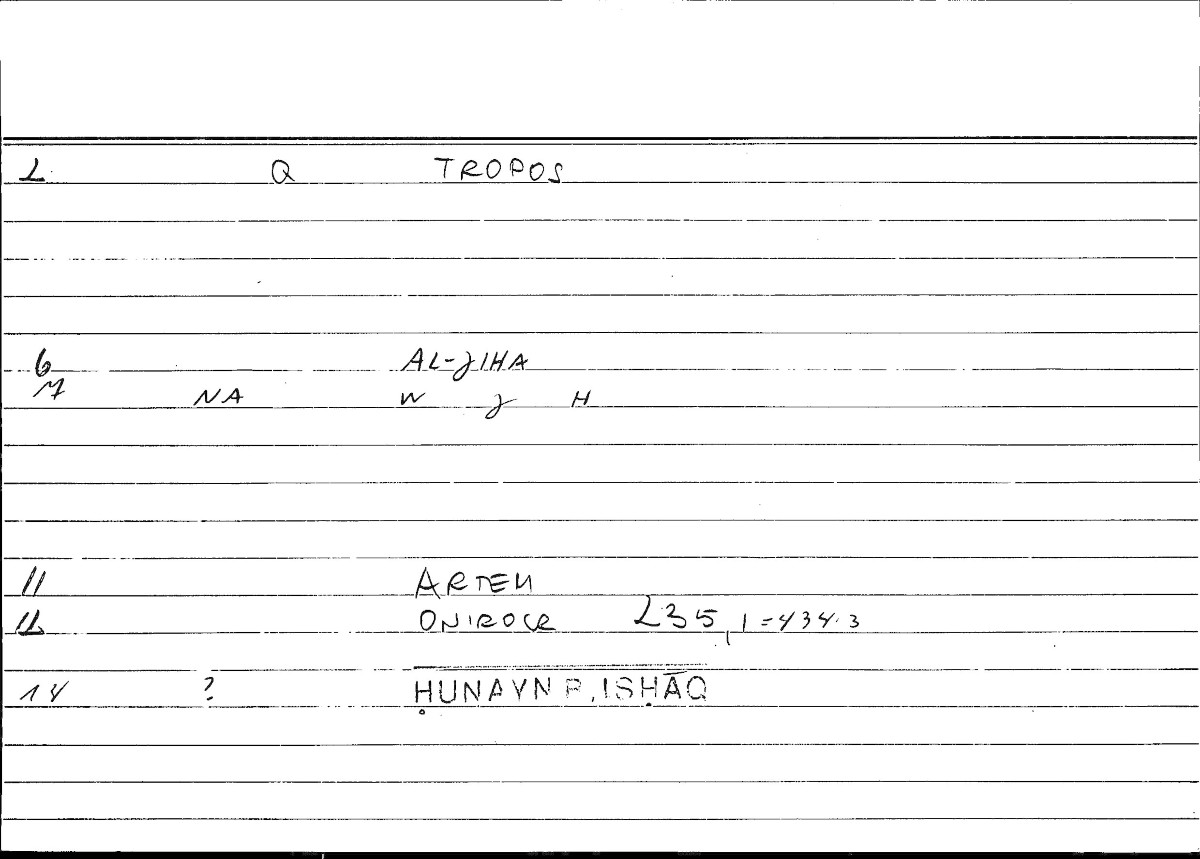 2 Q TROPOS
6 AL-JIHA
7 NA W J H
11 ARTEM
12 ONIROCR 235,1=434.3
14 ? ḤUNAYN B. ISḤĀQ